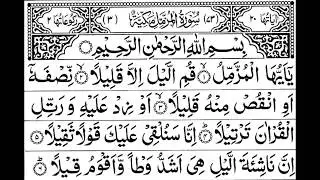 اٰیاتها ۲۰ (۷۳) سُوْرَةُ الْمُزَّمِّلِ مَكِّيَّةٌ (۳) رکوعاتها ۲
بِسْمِ اللهِ الرَّحْمٰنِ الرَّحِيْمِ
يٰۤاَيُّهَا الْمُزَّمِّلُ ۙ۱ قُمِ الَّيْلَ اِلَّا قَلِيْلًا ۙ۲ نِّصْفَهٗۤ
اَوِ انْقُصْ مِنْهُ قَلِيْلًا ۙ۳ اَوْ زِدْ عَلَيْهِ وَ رَتِّلِ
الْقُرْاٰنَ تَرْتِيْلًا ؕ۴ اِنَّا سَنُلْقِيْ عَلَيْكَ قَوْلًا ثَقِيْلًا ۵
اِنَّ نَاشِئَةَ الَّيْلِ هِيَ اَشَدُّ وَطْاً وَّ اَقْوَمُ قِيْلًا ؕ۶